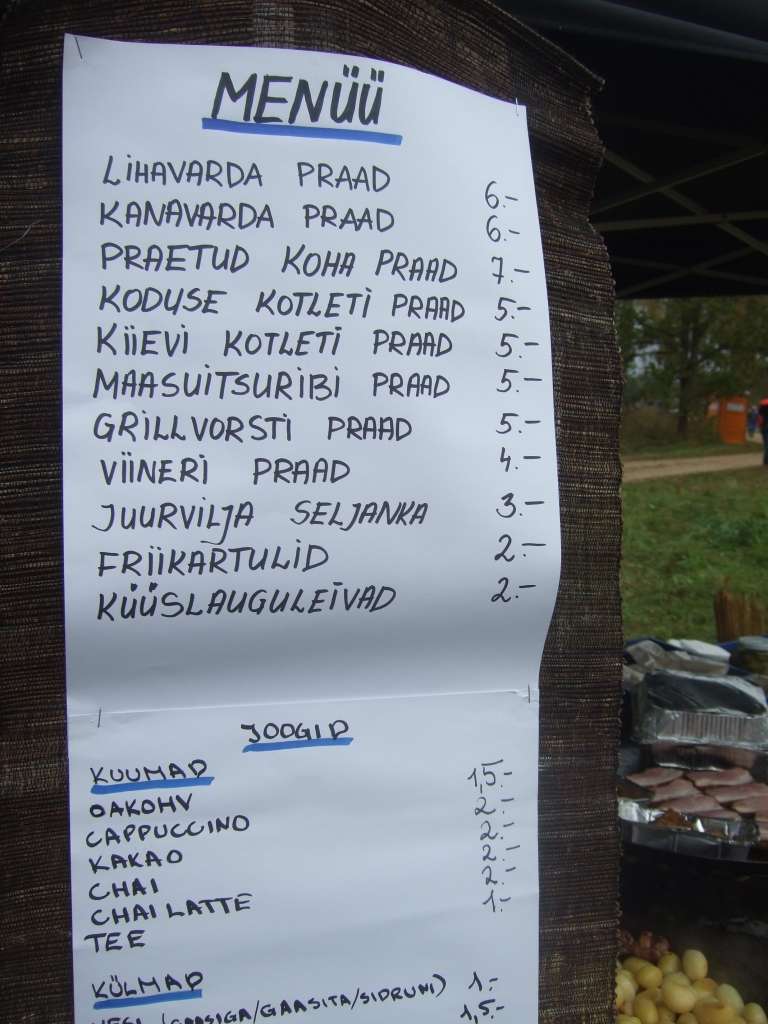 MENÜÜ
LIHAVARDA PRAAD 6.-
KANAVARDA PRAAD 6.-
PRAETUD KOHA PRAAD 7.-
KODUSE KOTLETI PRAAD 5.-
KIIEVI KOTLETI PRAAD 5.-
MAASUITSURIBI PRAAD 5.-
GRILLVORSTI PRAAD 5.-
VIINERI PRAAD 4.-
JUURVILJA SELJANKA 3.-
FRIIKARTULID 2.-
KÜÜSLAUGULEIVAD 2.-
JOOGID
KUUMAD
OAKOHV 1,5.-
CAPPUCCINO 2.-
KAKAO 2.-
CHAI 2.-
CHAI LATTE 2.-
TEE 1.-
KÜLMAD
VESI (GAASIGA/GAASITA/SIDRUNI) 1.-
1,5.-